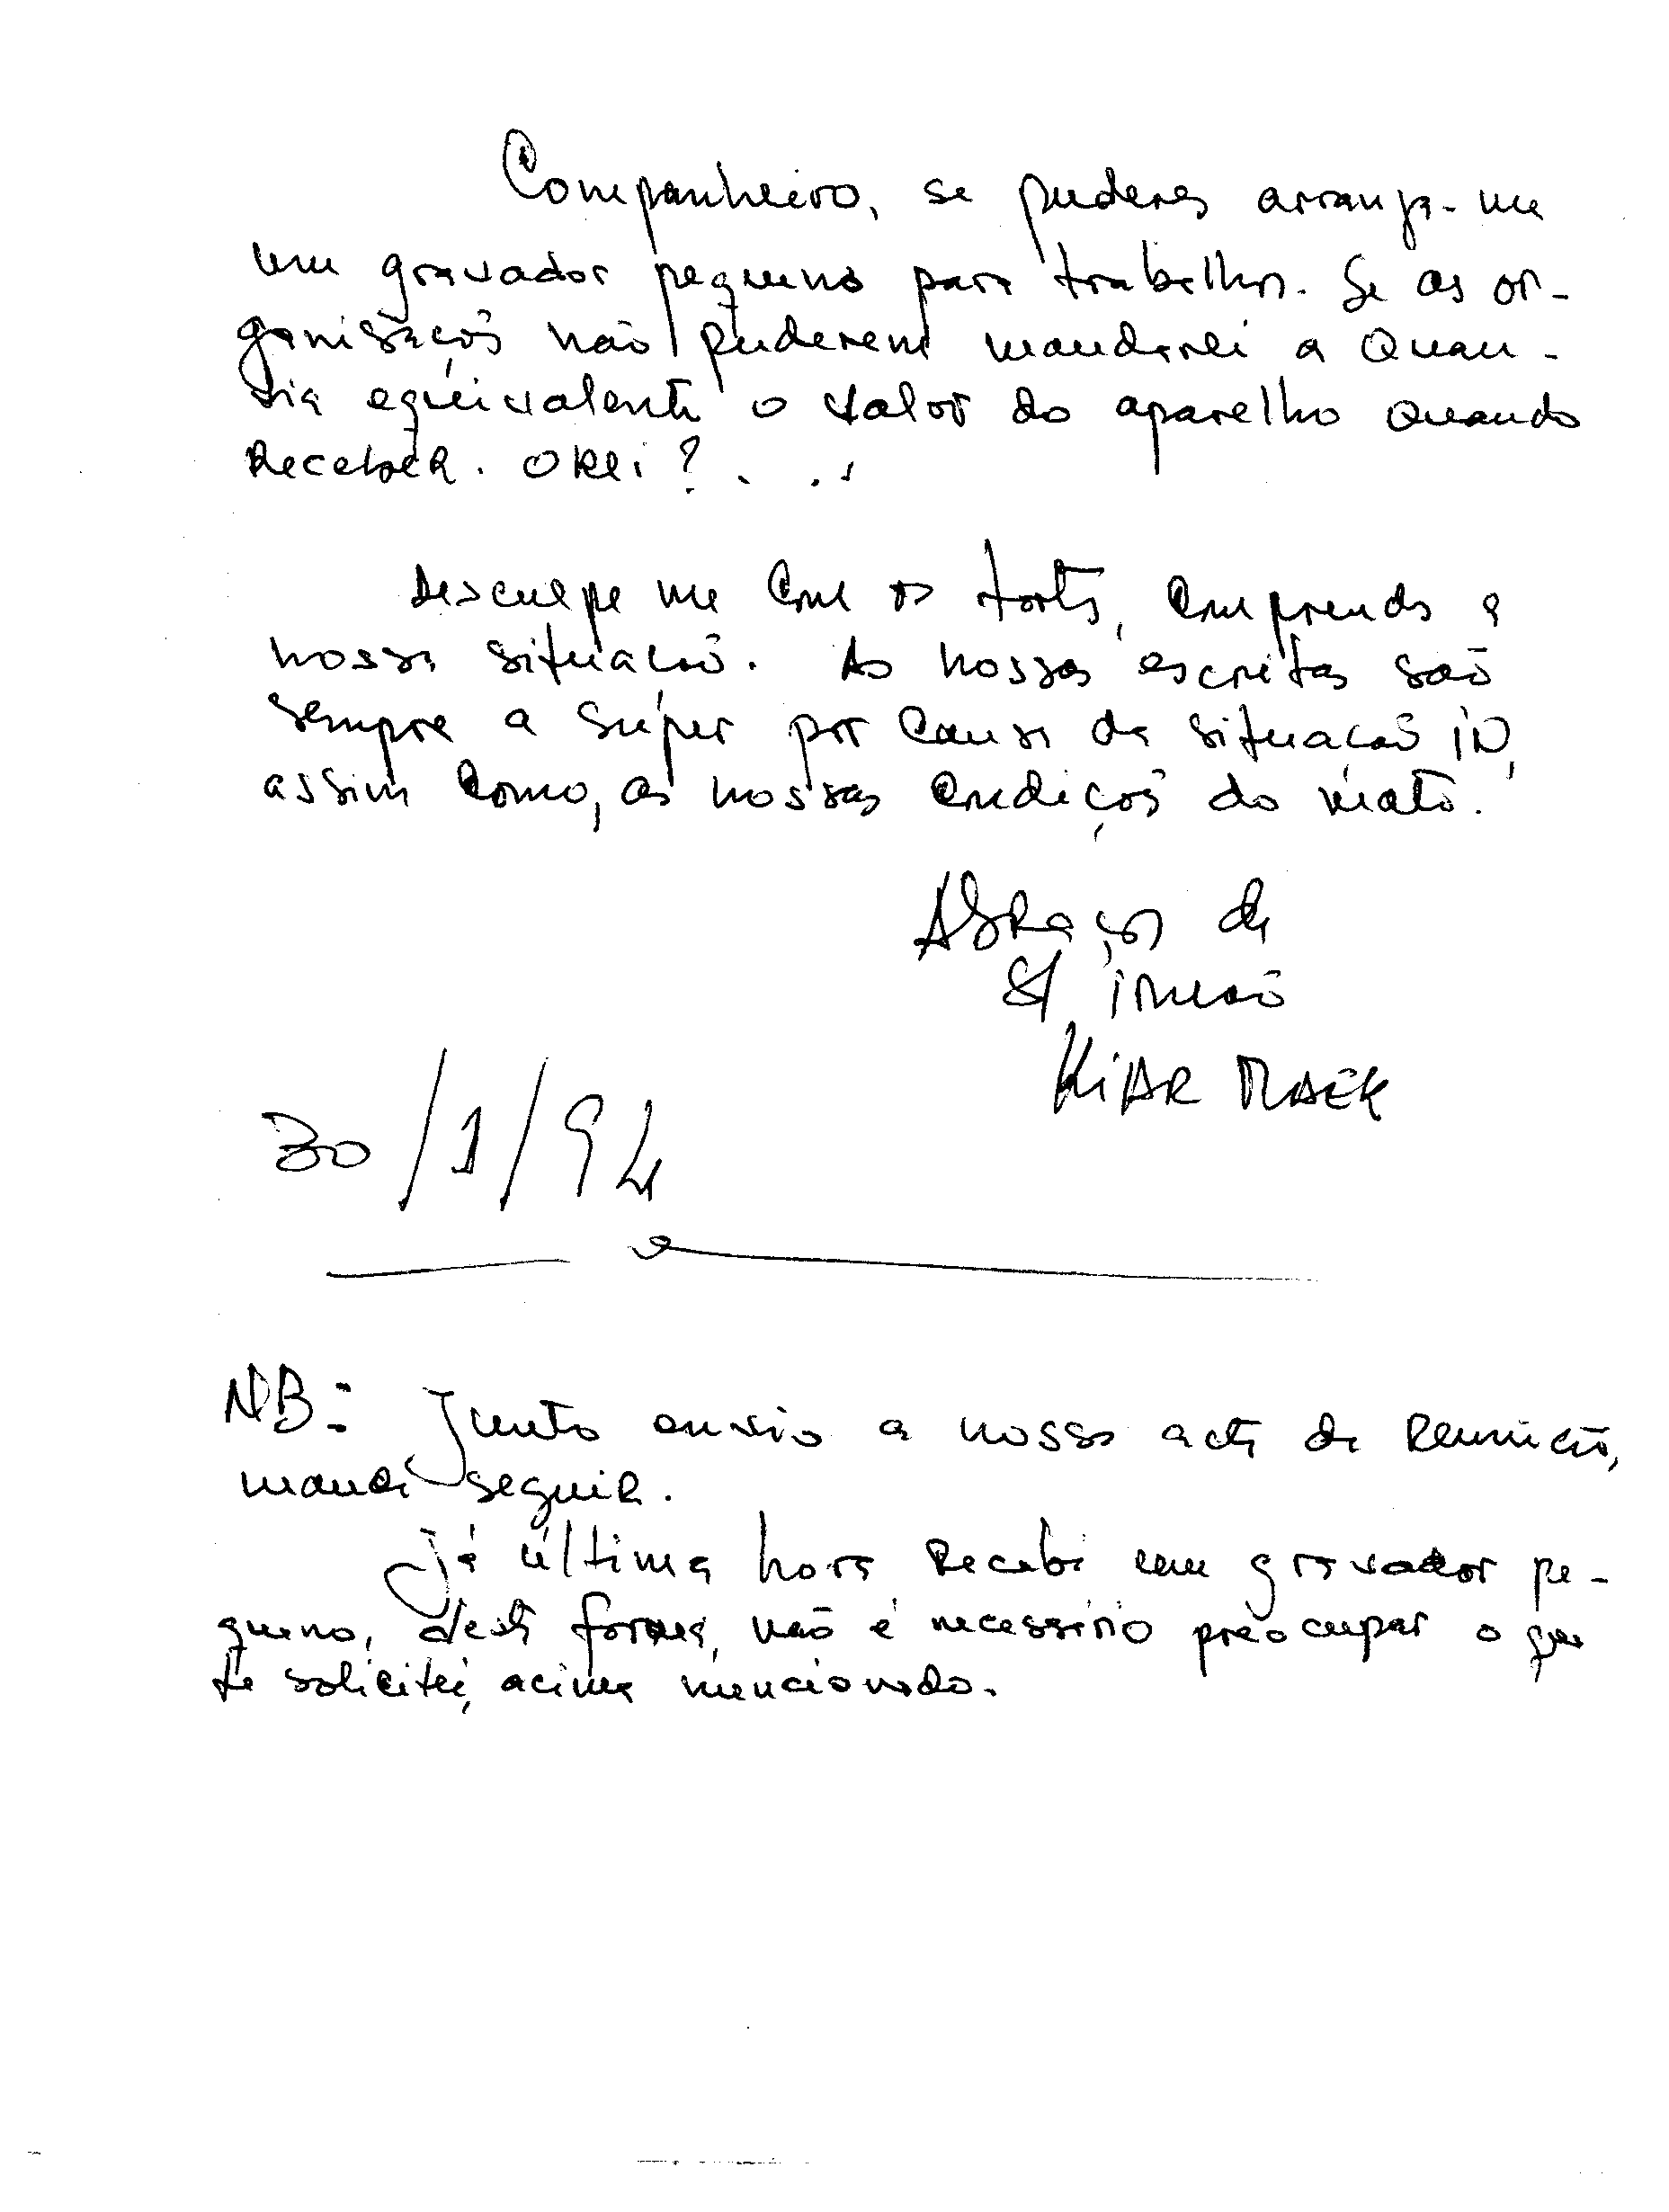 Companheiro, se puderes arranja-me
um gravador pequeno para trabalhos. Se as or-
ganisaçoẽs não puderem mandarei a Quan-
tia equivalente o valor do aparelho Quando
Receber. Okei? . . .
Desculpe me com os tortos, comprenda a
nossa situacaõ. As nossas escritas saõ
sempre a súper por causa da situaçaõ iN,
assim como, as nossas condiçoẽs do mato.
Abraços de
S/ irmaõ
KiAR MAEK
30/1/94
NB: Junto envio a nossa acta de Reunião,
manda seguir.
Já última hora Recebi um gravador pe-
queno, desta forma, não é necessário preocupar o que
te solicitei, acima mencionado.